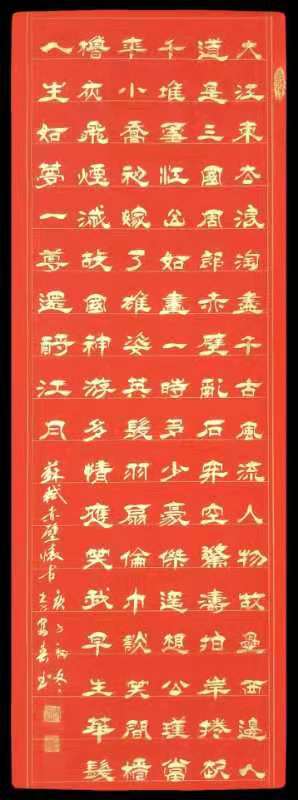 大江東去浪淘盡千古風流人物故壘西邊人
道是三國周郎赤壁亂石穿空驚濤拍岸捲起
千堆雪江山如畫一時多少豪傑遙想公瑾當
年小喬初嫁了雄姿英發羽扇綸巾談笑間檣
櫓灰飛煙滅故國神游多情應笑我早生華髮
人生如夢一尊還酹江月
蘇軾赤壁懷古
庚子初冬
書